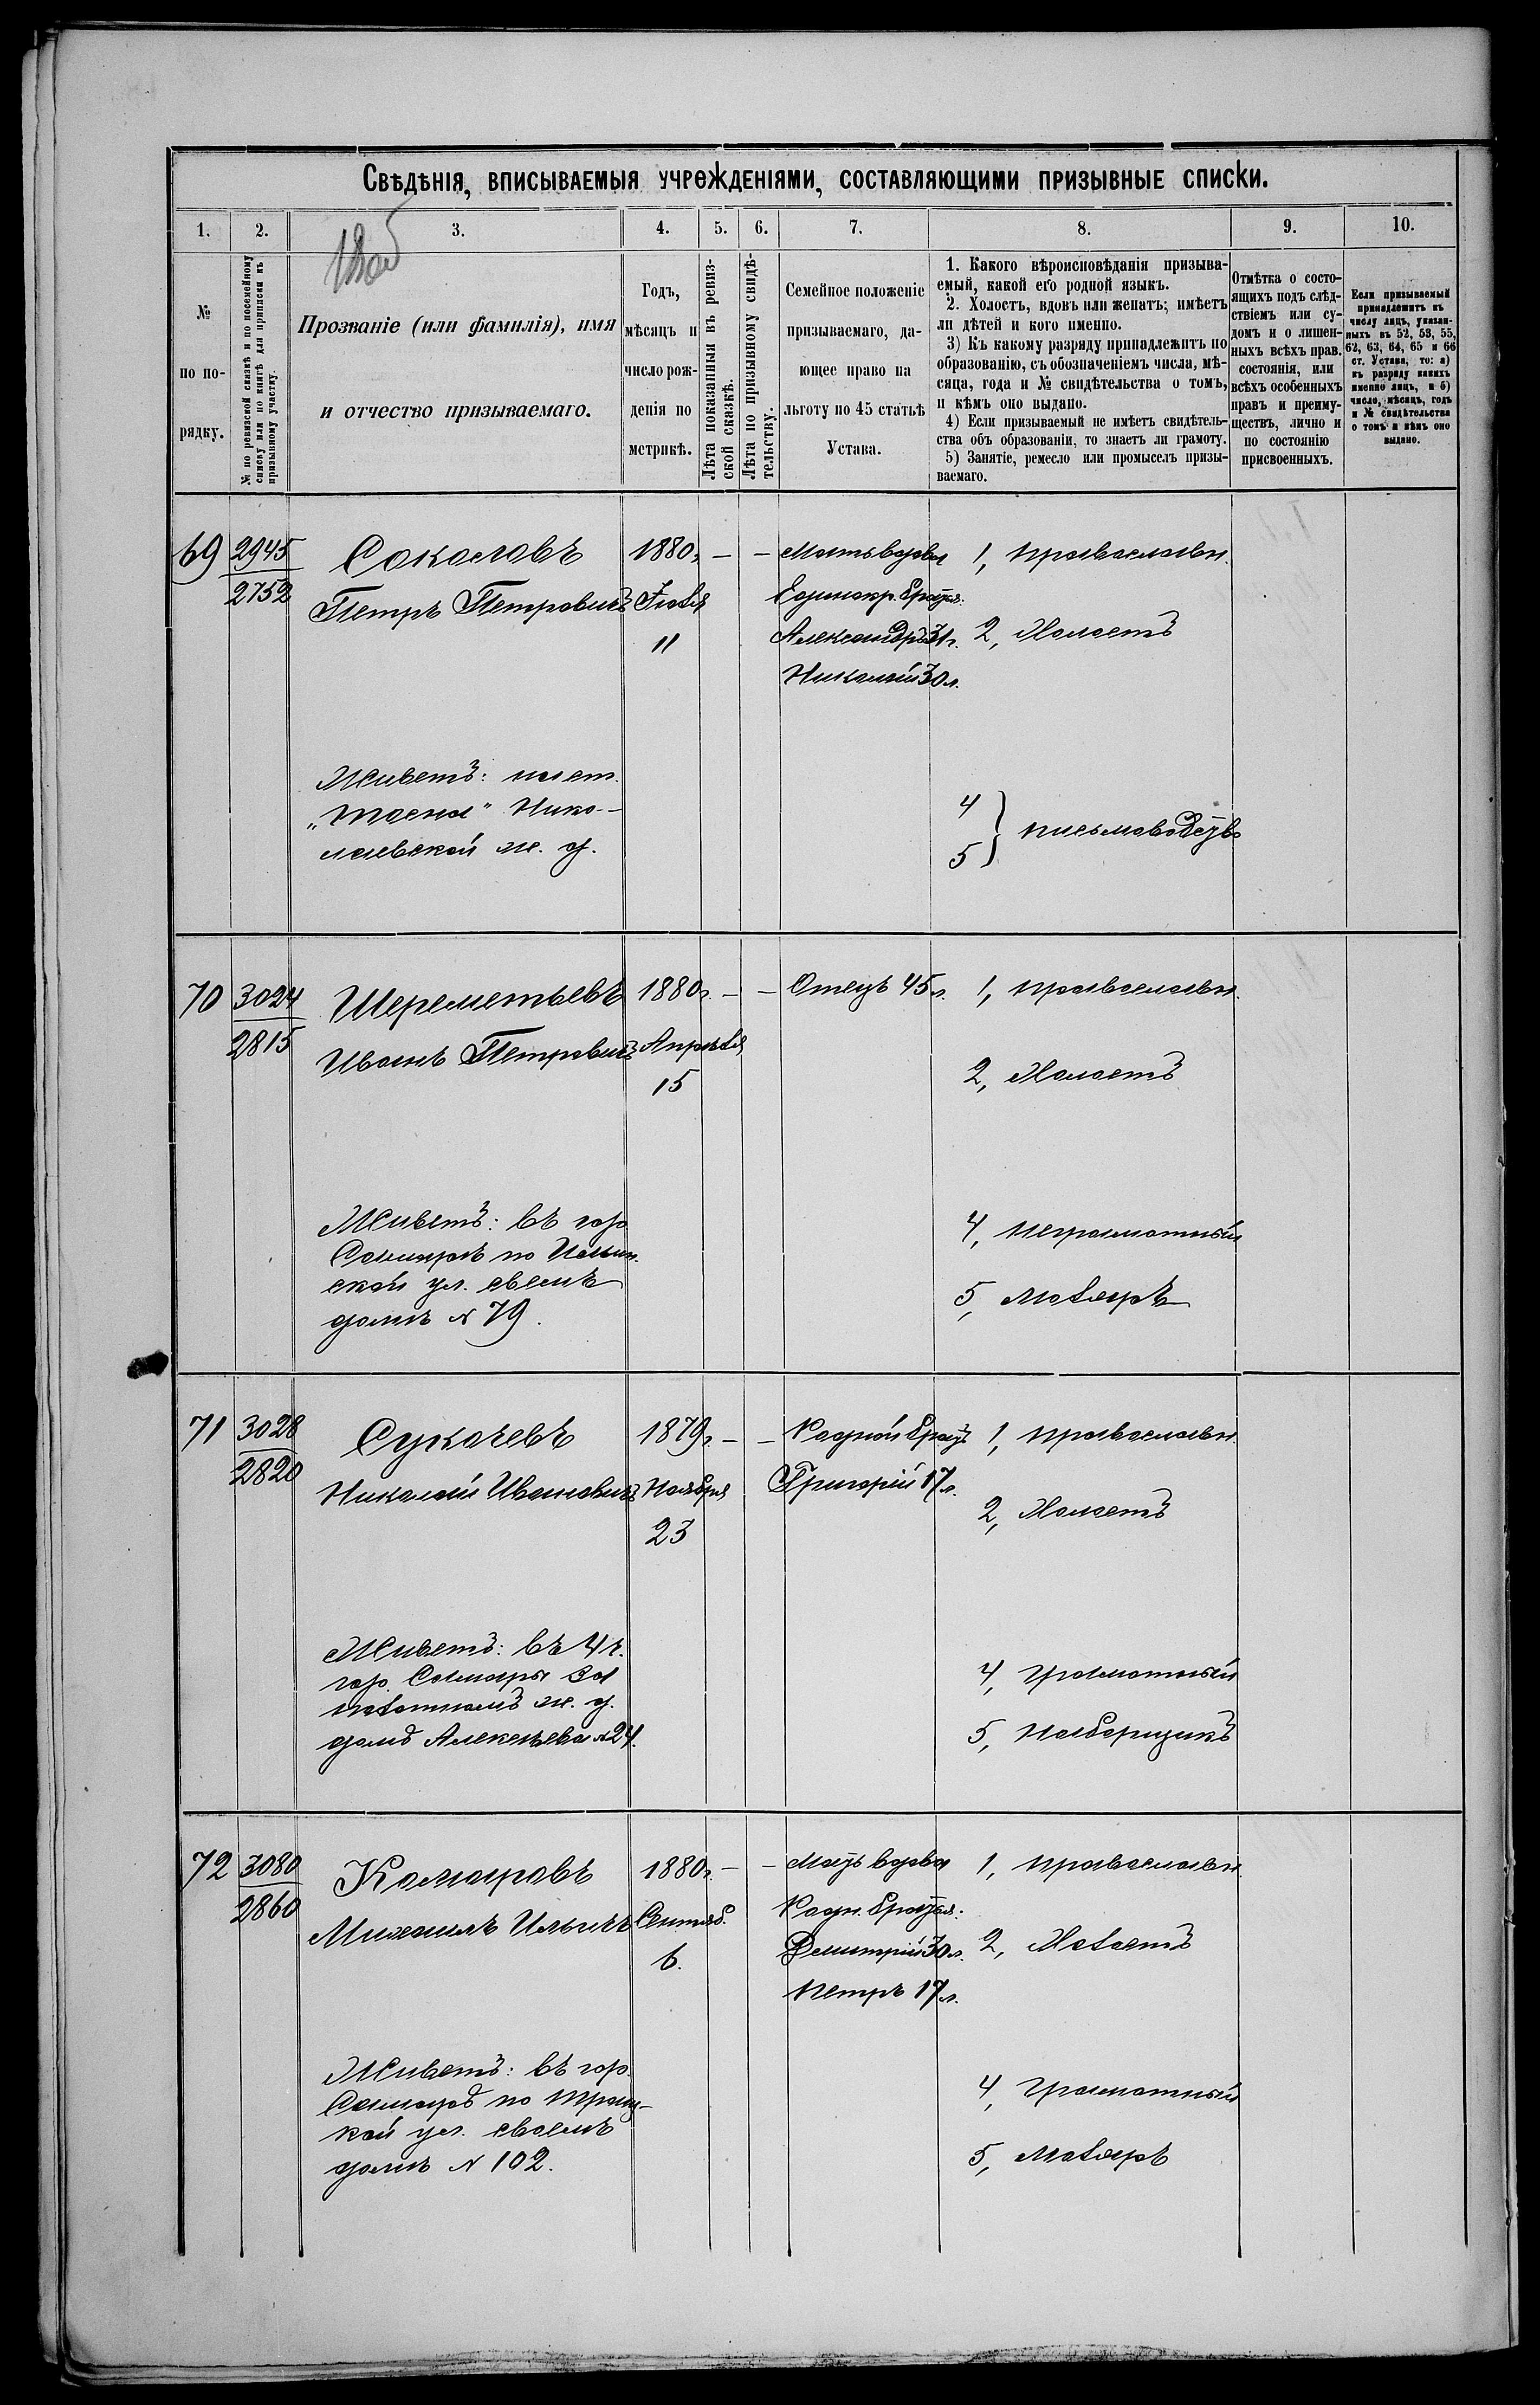 Свѣдѣнія, вписываемыя учрежденіями, составляющими призывные списки.
1. 2. 3. 4. 5. 6. 7. 8. 9. 10.
№
по по-
рядку.
№ по ревизской сказкѣ и по посемейному
списку или по книгѣ для приписки къ
призывному участку.
Прозваніе (или фамилія), имя
и отчество призываемаго.
Годъ,
мѣсяцъ и
число рож-
денія по
метрикѣ.
Лѣта показанныя въ ревиз-
ской сказкѣ.
Лѣта по призывному свидѣ-
тельству.
Семейное положеніе
призываемаго, да-
ющее право на
льготу по 45 статьѣ
Устава.
1. Какого вѣроисповѣданія призыва-
емый, какой его родной языкъ.
2. Холостъ, вдовъ или женатъ; имѣетъ
ли дѣтей и кого именно.
3) Къ какому разряду принадлежитъ по
образованію, съ обозначеніемъ числа, мѣ-
сяца, года и № свидѣтельства о томъ,
и кѣмъ оно выдано.
4) Если призываемый не имѣетъ свидѣтель-
ства объ образованіи, то знаетъ ли грамоту.
5) Занятіе, ремесло или промыселъ призы-
ваемаго.
Отмѣтка о состо-
ящихъ подъ слѣд-
ствіемъ или су-
домъ и о лишен-
ныхъ всѣхъ прав.
состоянія, или
всѣхъ особенныхъ
правъ и преиму-
ществъ, лично и
по состоянію
присвоенныхъ.
Если призываемый
принадлежитъ къ
числу лицъ, указан-
ныхъ въ 52, 53, 55,
62, 63, 64, 65 и 66
ст. Устава, то: а)
къ разряду какихъ
именно лицъ, и б)
число, мѣсяцъ, годъ
и № свидѣтельства
о томъ и кѣмъ оно
выдано.
69
2945
2752
Соколовъ
Петръ Петровичъ
1880г.
Іюля
11
—
—
Мать вдова
Единокр. братья:
Александръ 31г.
Николай 30л.
1, православн.
2, Холостъ
Живетъ: на ст.
„Тосна“ Нико-
лаевской ж. д.
4
5 } письмоводст.
70
3024
2815
Шереметьевъ
Иванъ Петровичъ
1880г.
Апрѣля
15
—
—
Отецъ 45л.
1, православн.
2, Холостъ
Живетъ: въ гор.
Самарѣ по Ильин-
ской ул. своемъ
домѣ № 79.
4, неграмотный
5, маляръ
71
3028
2820
Сукачевъ
Николай Ивановичъ
1879г.
Ноября
23
—
—
Родной братъ
Григорій 17л.
1, православн.
2, Холостъ
Живетъ: въ 4 ч.
гор. Самары за
полотномъ ж. д.
домъ Алексѣева № 24.
4, грамотный
5, Наборщикъ
72
3080
2860
Комаровъ
Михаилъ Ильичъ
1880г.
Сентяб.
6.
—
—
Мать вдова
Родн. братья:
Дмитрій 30л.
Петръ 17л.
1, православн.
2, Холостъ
Живетъ: въ гор.
Самарѣ по Троиц-
кой ул. своемъ
домѣ № 102.
4, грамотный
5, Маляръ